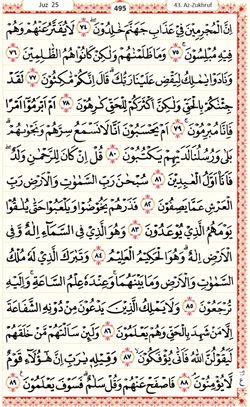 Juz 25 495 43. Az-Zukhruf
إِنَّ الْمُجْرِمِينَ فِي عَذَابِ جَهَنَّمَ خٰلِدُونَ ۚ ٧٤ لَا يُفَتَّرُ عَنْهُمْ وَهُمْ
فِيهِ مُبْلِسُونَ ۚ ٧٥ وَمَا ظَلَمْنٰهُمْ وَلٰكِنْ كَانُوا هُمُ الظّٰلِمِينَ ٧٦
وَنَادَوْا يٰمٰلِكُ لِيَقْضِ عَلَيْنَا رَبُّكَ ۗ قَالَ إِنَّكُمْ مّٰكِثُونَ ٧٧ لَقَدْ
جِئْنٰكُمْ بِالْحَقِّ وَلٰكِنَّ أَكْثَرَكُمْ لِلْحَقِّ كٰرِهُونَ ٧٨ أَمْ أَبْرَمُوا أَمْرًا
فَإِنَّا مُبْرِمُونَ ۚ ٧٩ أَمْ يَحْسَبُونَ أَنَّا لَا نَسْمَعُ سِرَّهُمْ وَنَجْوٰىهُمْ ۗ
بَلٰى وَرُسُلُنَا لَدَيْهِمْ يَكْتُبُونَ ٨٠ قُلْ إِنْ كَانَ لِلرَّحْمٰنِ وَلَدٌ ۖ
فَأَنَا أَوَّلُ الْعٰبِدِينَ ٨١ سُبْحٰنَ رَبِّ السَّمٰوٰتِ وَالْأَرْضِ رَبِّ
الْعَرْشِ عَمَّا يَصِفُونَ ٨٢ فَذَرْهُمْ يَخُوضُوا وَيَلْعَبُوا حَتّٰى يُلٰقُوا
يَوْمَهُمُ الَّذِي يُوعَدُونَ ٨٣ وَهُوَ الَّذِي فِي السَّمَاءِ إِلٰهٌ وَفِي
الْأَرْضِ إِلٰهٌ ۗ وَهُوَ الْحَكِيمُ الْعَلِيمُ ٨٤ وَتَبٰرَكَ الَّذِي لَهُ مُلْكُ
السَّمٰوٰتِ وَالْأَرْضِ وَمَا بَيْنَهُمَا ۚ وَعِنْدَهُ عِلْمُ السَّاعَةِ ۚ وَإِلَيْهِ
تُرْجَعُونَ ٨٥ وَلَا يَمْلِكُ الَّذِينَ يَدْعُونَ مِنْ دُونِهِ الشَّفَاعَةَ
إِلَّا مَنْ شَهِدَ بِالْحَقِّ وَهُمْ يَعْلَمُونَ ٨٦ وَلَئِنْ سَأَلْتَهُمْ مَنْ خَلَقَهُمْ
لَيَقُولُنَّ اللّٰهُ فَأَنّٰى يُؤْفَكُونَ ۙ ٨٧ وَقِيلِهِ يٰرَبِّ إِنَّ هٰؤُلَاءِ قَوْمٌ
لَا يُؤْمِنُونَ ۘ ٨٨ فَاصْفَحْ عَنْهُمْ وَقُلْ سَلٰمٌ ۗ فَسَوْفَ يَعْلَمُونَ ٨٩